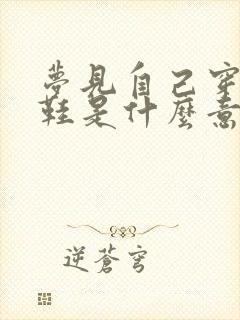 夢見自己穿
鞋是什麼意
逆蒼穹